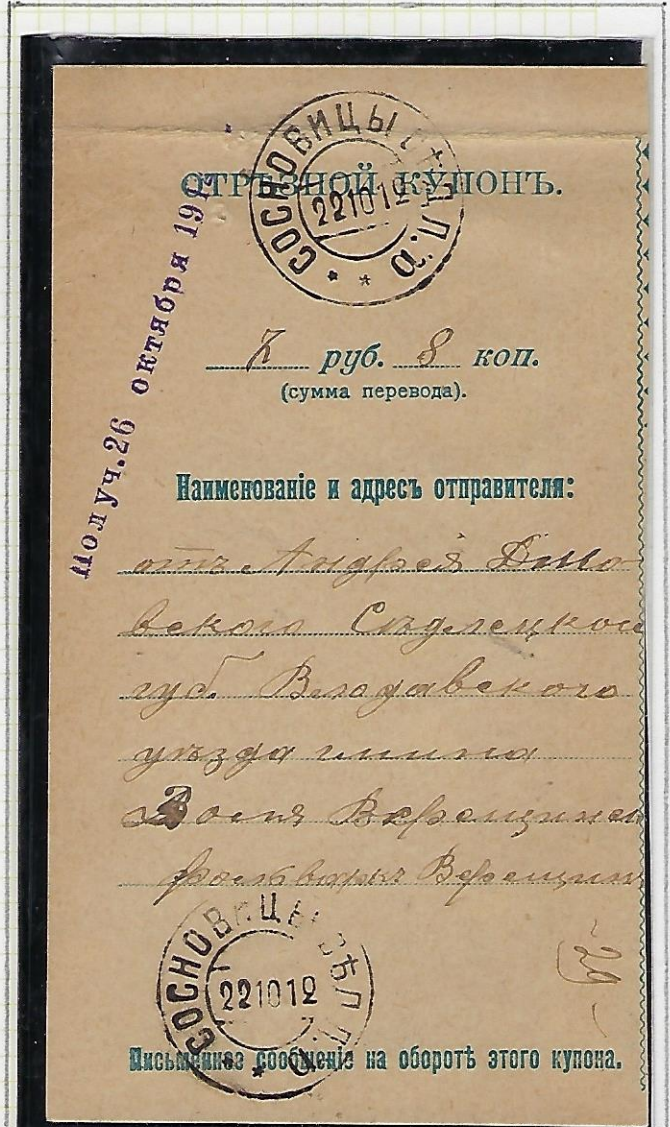 СОСНОВИЦЫ СѢДЛ. П.О.
221012
ОТРѢЗНОЙ КУПОНЪ.
Получ. 26 октября 191
7 руб. 8 коп.
(сумма перевода).
Наименованіе и адресъ отправителя:
отъ Андрея
вского Сѣдлецкой
губ. Влодавского
уѣзда гмина
Воля Верещинск
фольваркъ Верещин
29
СОСНОВИЦЫ СѢДЛ. П.О.
221012
Письменное сообщеніе на оборотѣ этого купона.